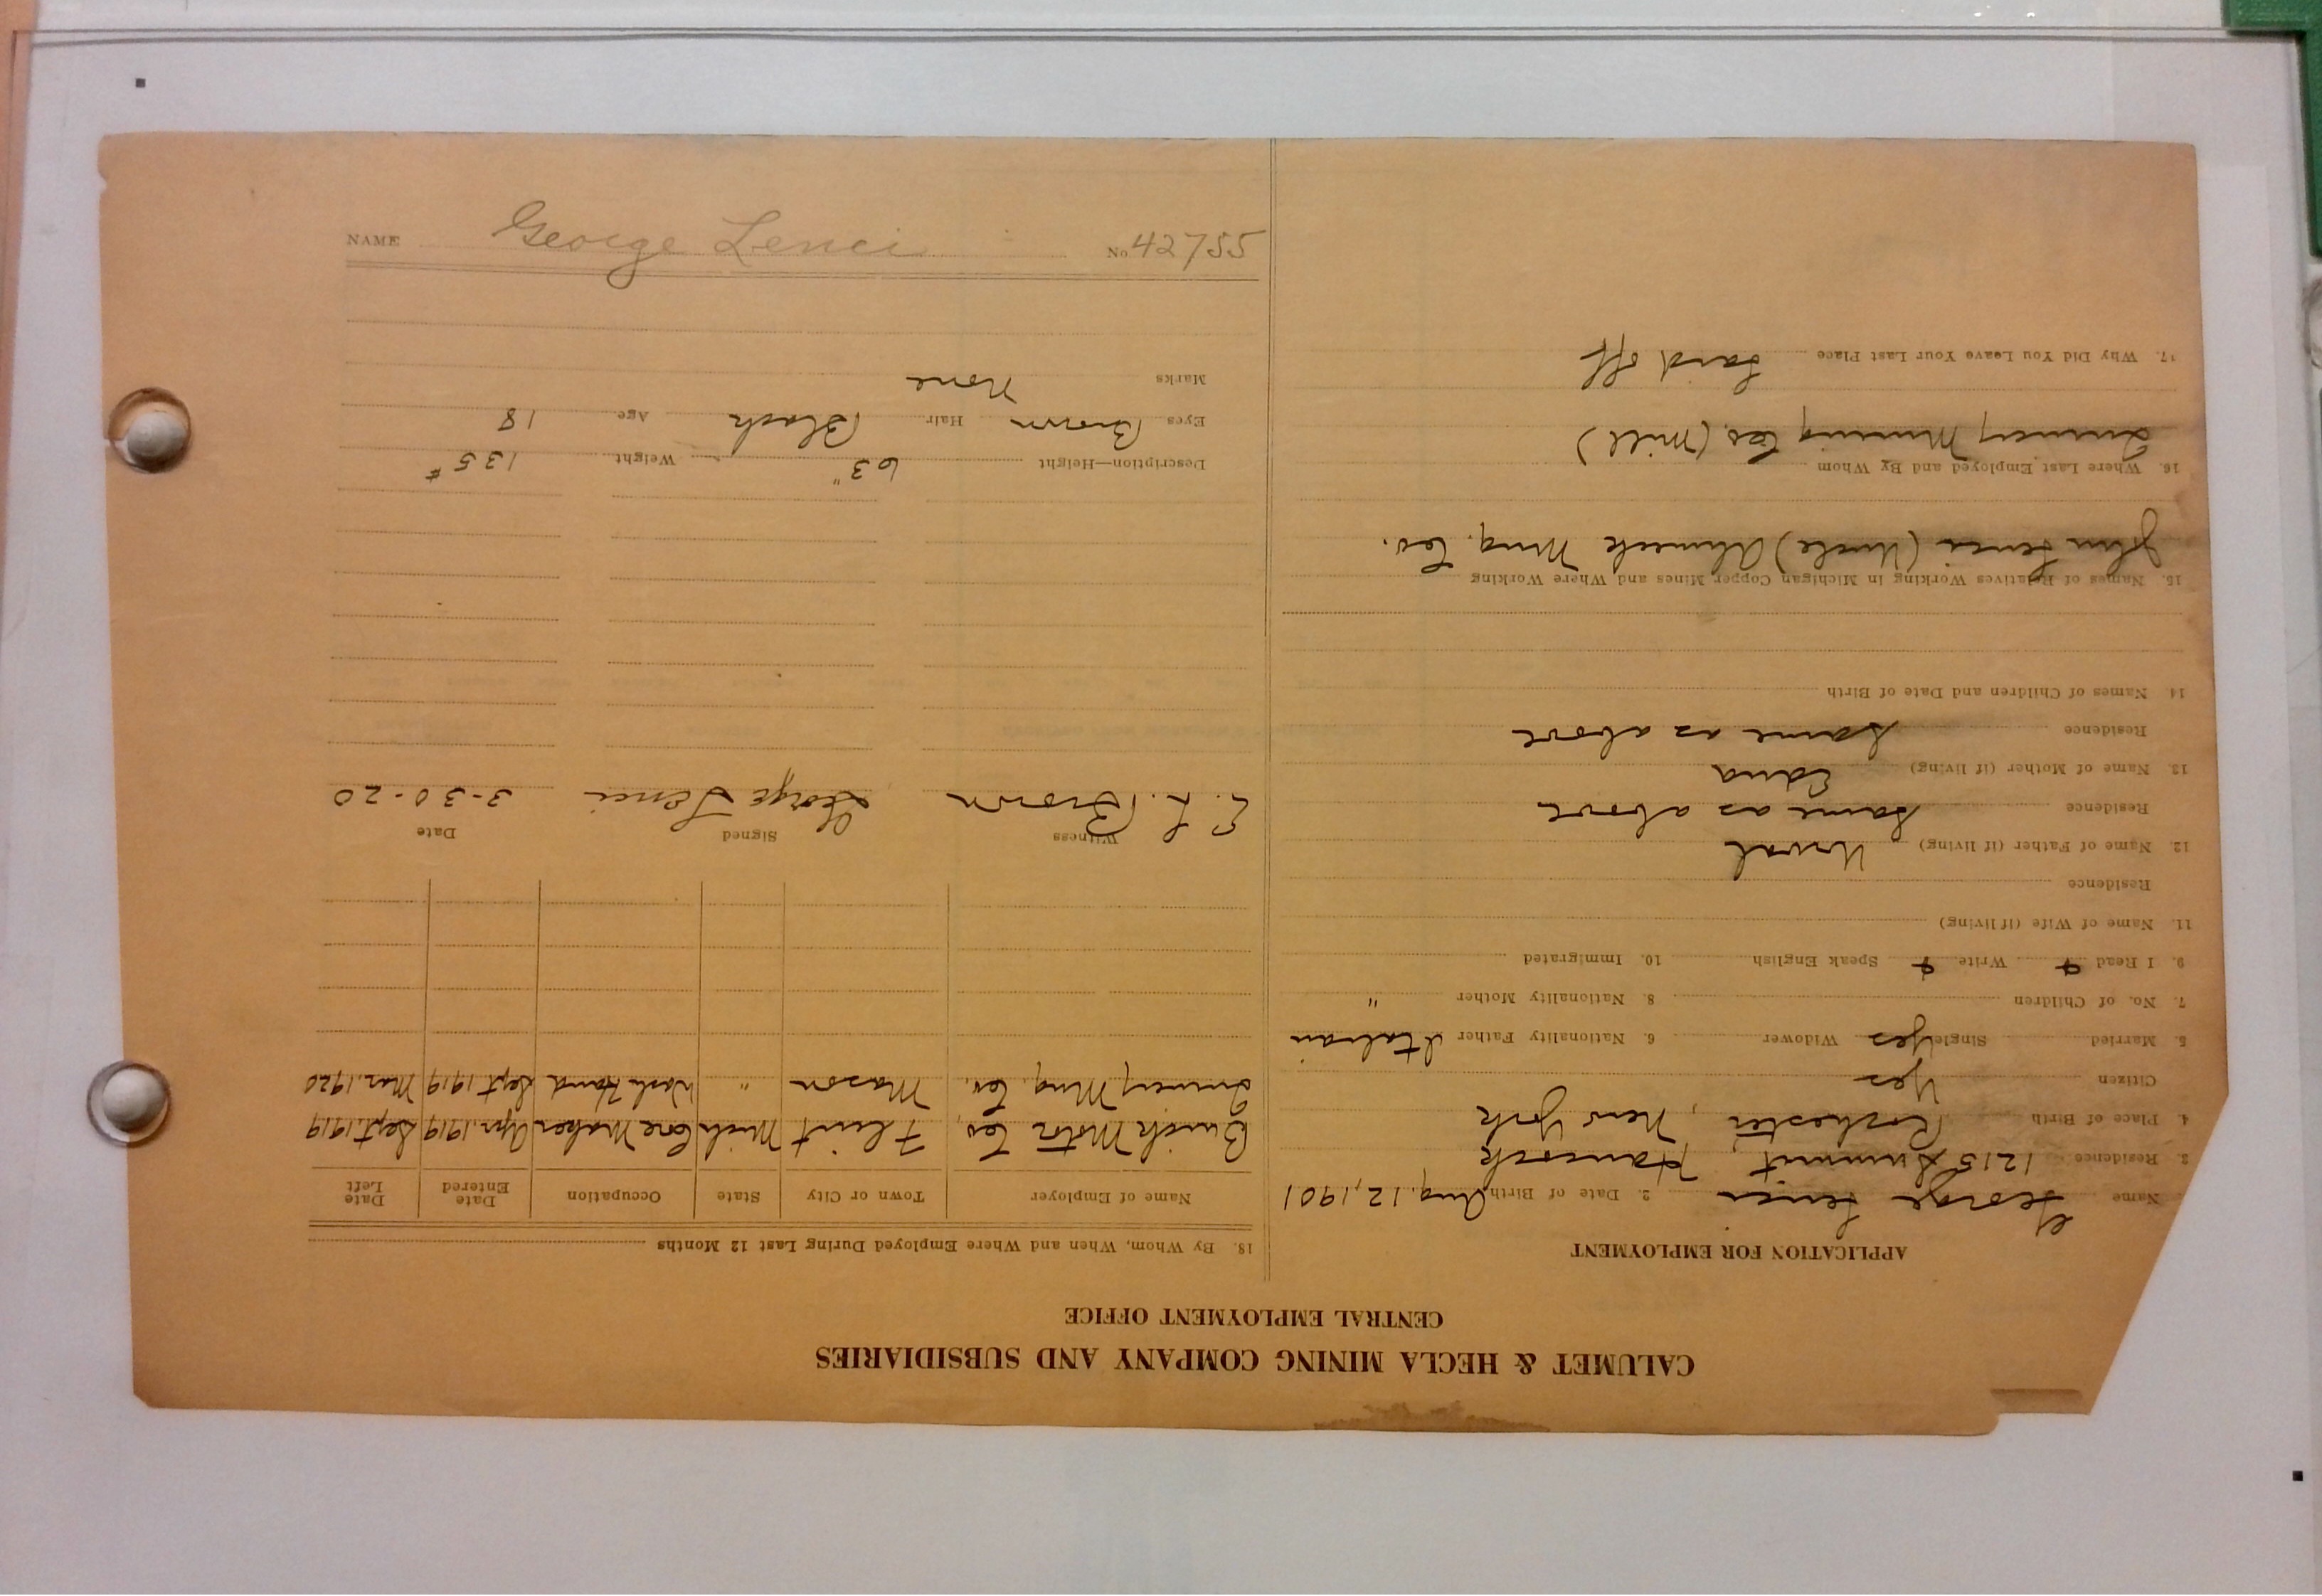 NAME George Lenci No. 42755
CALUMET & HECLA MINING COMPANY AND SUBSIDIARIES
CENTRAL EMPLOYMENT OFFICE
APPLICATION FOR EMPLOYMENT
Name George Lenci 2. Date of Birth Aug. 12, 1901
3. Residence 1215 Summit, Hancock
4. Place of Birth Rochester, New York
Citizen Yes
5. Married Single Yes Widower 6. Nationality Father Italian
7. No. of Children 8. Nationality Mother "
9. I Read Write Speak English 10. Immigrated
11. Name of Wife (if living)
Residence
12. Name of Father (if living)
Residence Same as above
13. Name of Mother (if living) Edna
Residence Same as above
14. Names of Children and Date of Birth
15. Names of Relatives Working in Michigan Copper Mines and Where Working
John Lenci (Uncle) Ahmeek Mng. Co.
16. Where Last Employed and By Whom
Quincy Mining Co. (Mill)
17. Why Did You Leave Your Last Place Laid off
18. By Whom, When and Where Employed During Last 12 Months
Name of Employer Town or City State Occupation Date Entered Date Left
Buick Motor Co. Flint Mich Core Maker Apr. 1919 Sept. 1919
Quincy Mng. Co. Mason " Wash Hand Sept. 1919 Mar. 1920
Witness Signed Date
E. L. Brown George Lenci 3-30-20
Description—Height 63" Weight 135 #
Eyes Brown Hair Black Age 18
Marks None